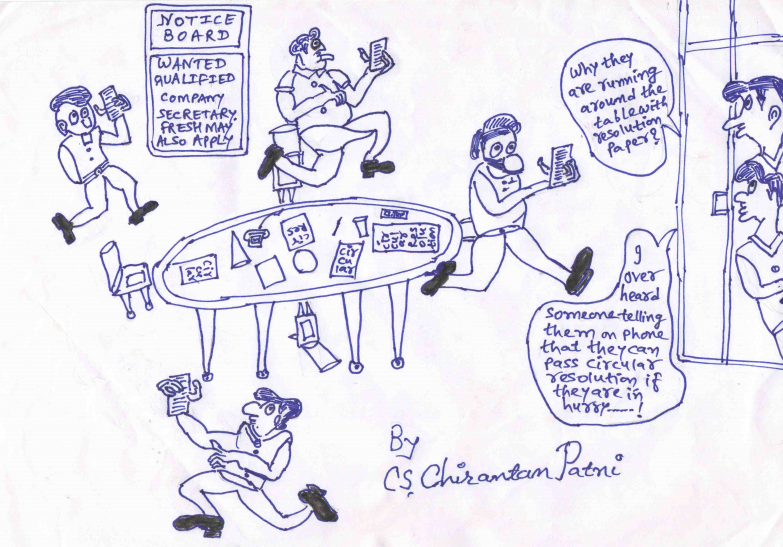 NOTICE
BOARD
WANTED
QUALIFIED
COMPANY
SECRETARY.
FRESH MAY
ALSO APPLY
Why they
are running
around the
table with
resolution
paper?
I
over
heard
someone telling
them on phone
that they can
pass circular
resolution if
they are in
hurry.....!
Cir
cu
lar
By
CS Chirantan Patni